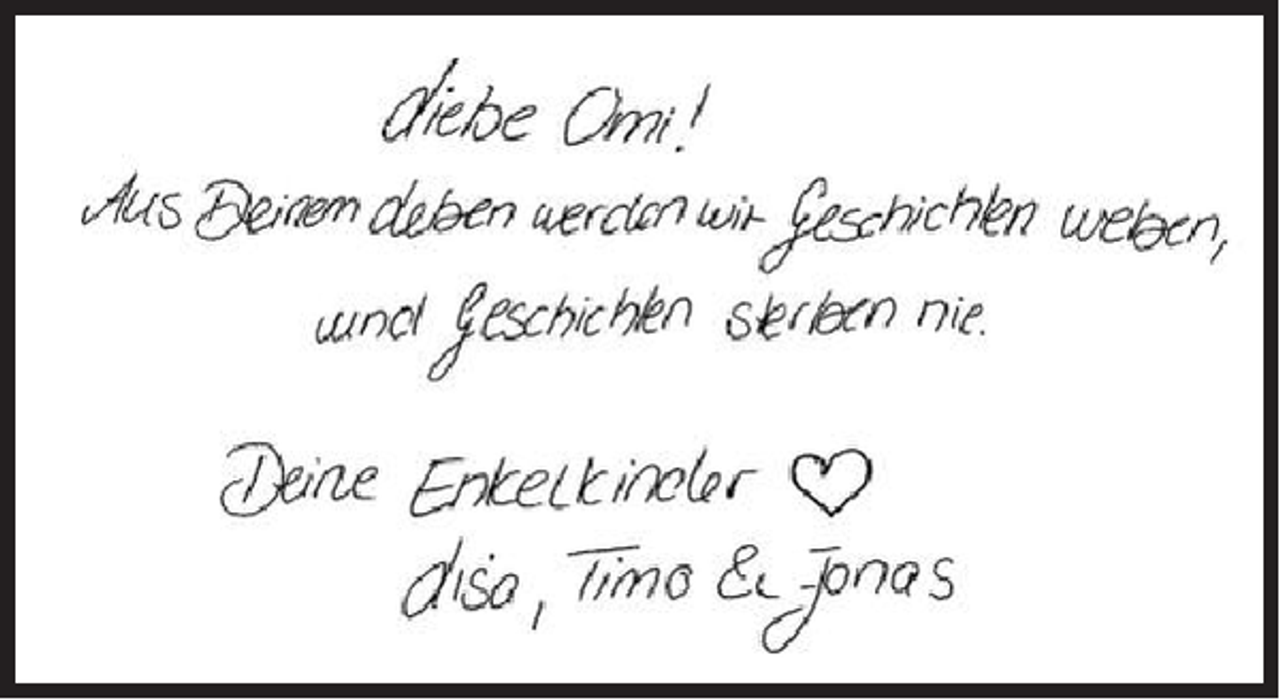 Liebe Omi!
Aus Deinem Leben werden wir Geschichten weben,
und Geschichten sterben nie.
Deine Enkelkinder ♡
Lisa, Timo & Jonas